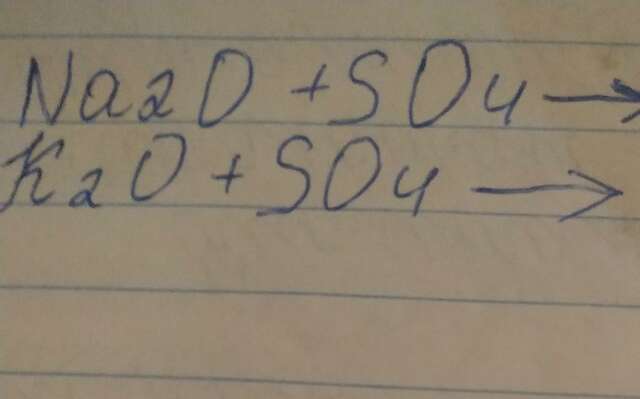 Na2O + SO4 →
K2O + SO4 →